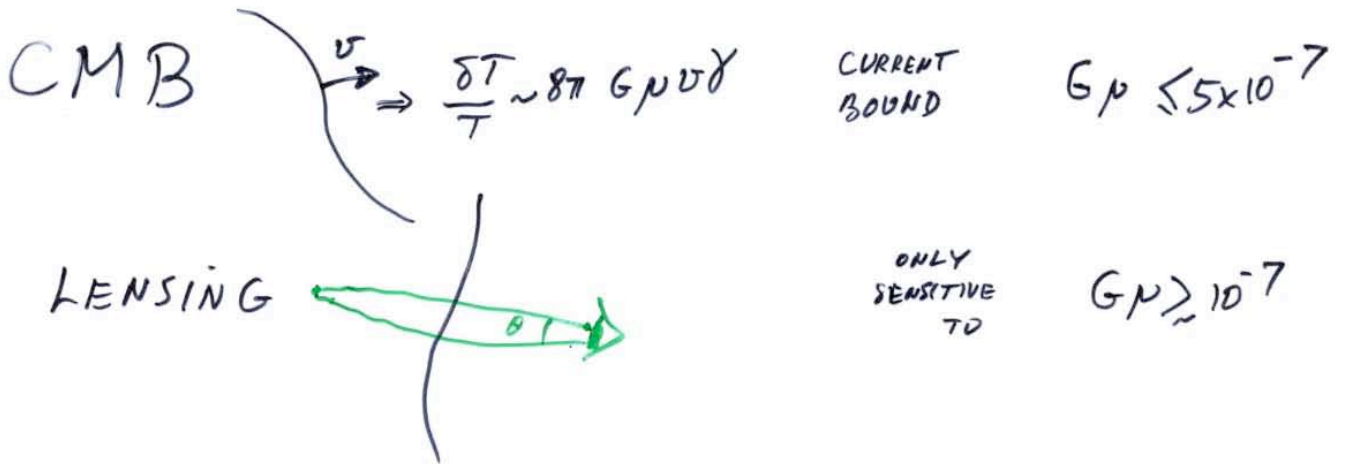 CMB
v
⇒ δT/T ~ 8π Gμvγ
CURRENT
BOUND
Gμ ≤ 5x10^-7
LENSING
θ
ONLY
SENSITIVE
TO
Gμ ≳ 10^-7